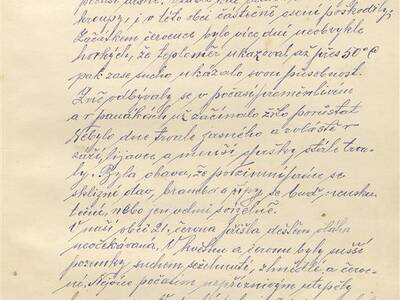 kroupy, i v této obci částečně osení poškodily.
Začátkem července bylo více dní neobvykle
horkých, že teploměr ukazoval až přes 50° C
pak zase sucho ukázalo svou působnost.
Žně odbývaly se v počasí proměnlivém
a v panákách už začínalo žito porůstat
Nebylo dne trvale jasného a zvláště v
září lijavce a menší spršky stále trva-
ly. Byla obava, že podzimní práce se
sklizně otav, brambor a řepy se buď neusku-
teční, nebo jen velmi
V naší obci 21. června přišla deštěm
neočekávaná. V květnu a červnu byly vyšší
pozemky suchem sežehnuté, zhnědlé a červe-
né. Nejvíce počasím nepříznivým utrpěly